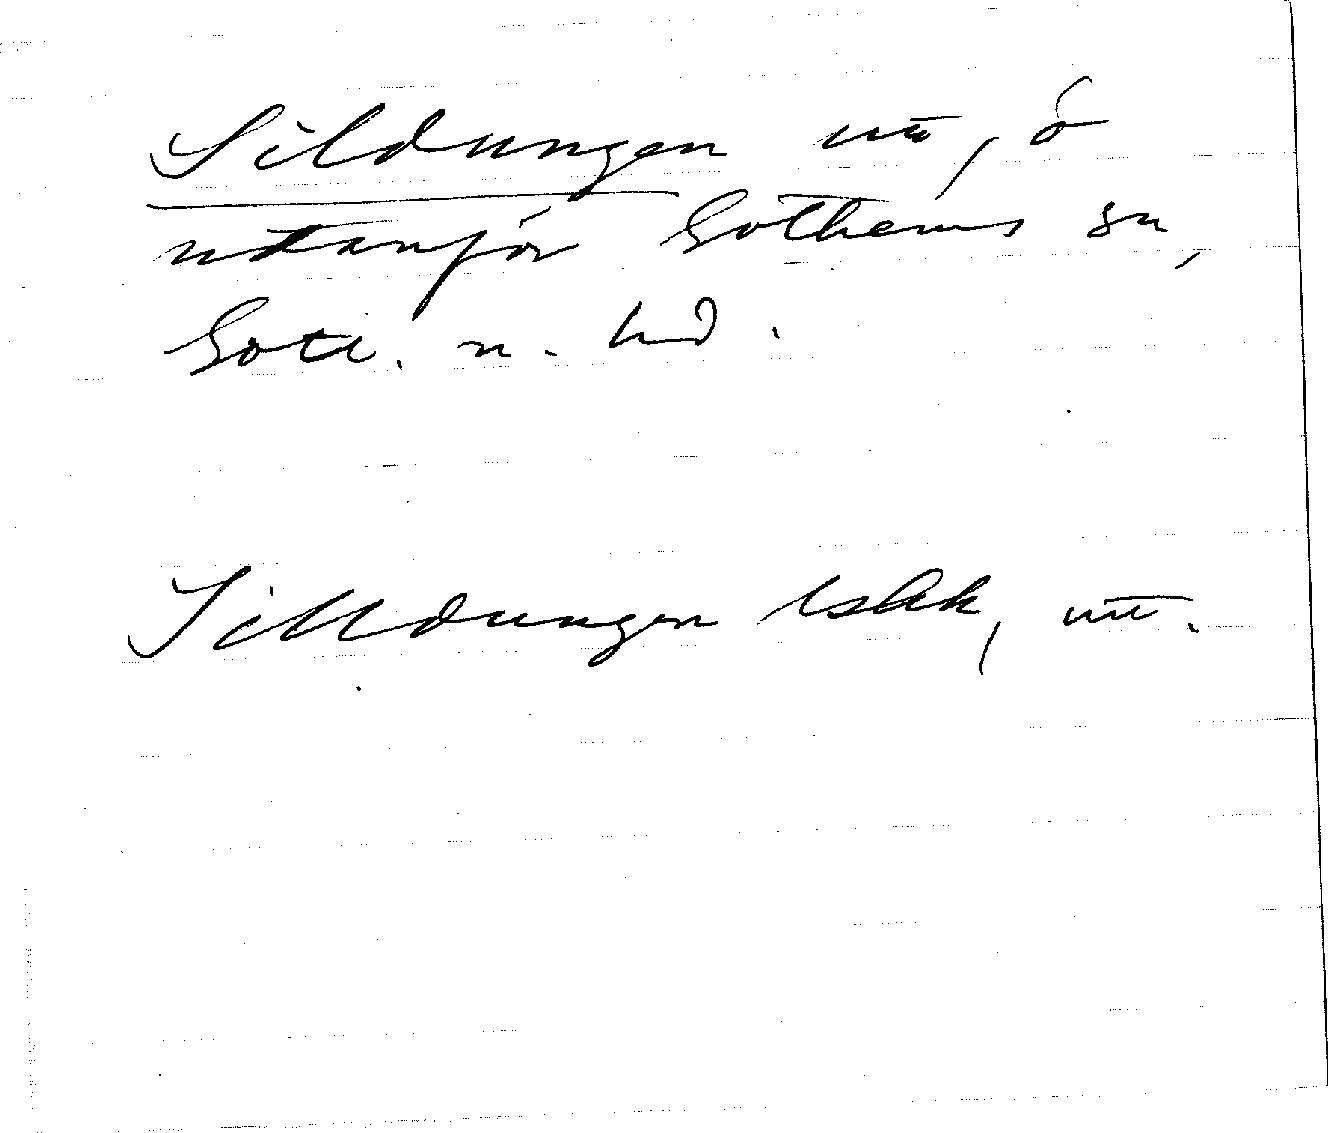 Sildungen utt, ö
utanför Gothems sn,
Gotl. n. hd.
Silldungen Eskk, utt.